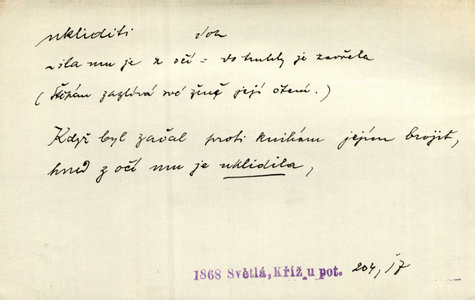 ukliditi dok
~ila mu je z očí = do truhly je zavřela
(Štěpán zazlívá své ženě její čtení.)
Když byl začal proti knihám jejím brojit,
hned z očí mu je uklidila,
1868 Světlá, Kříž u pot. 204, 17